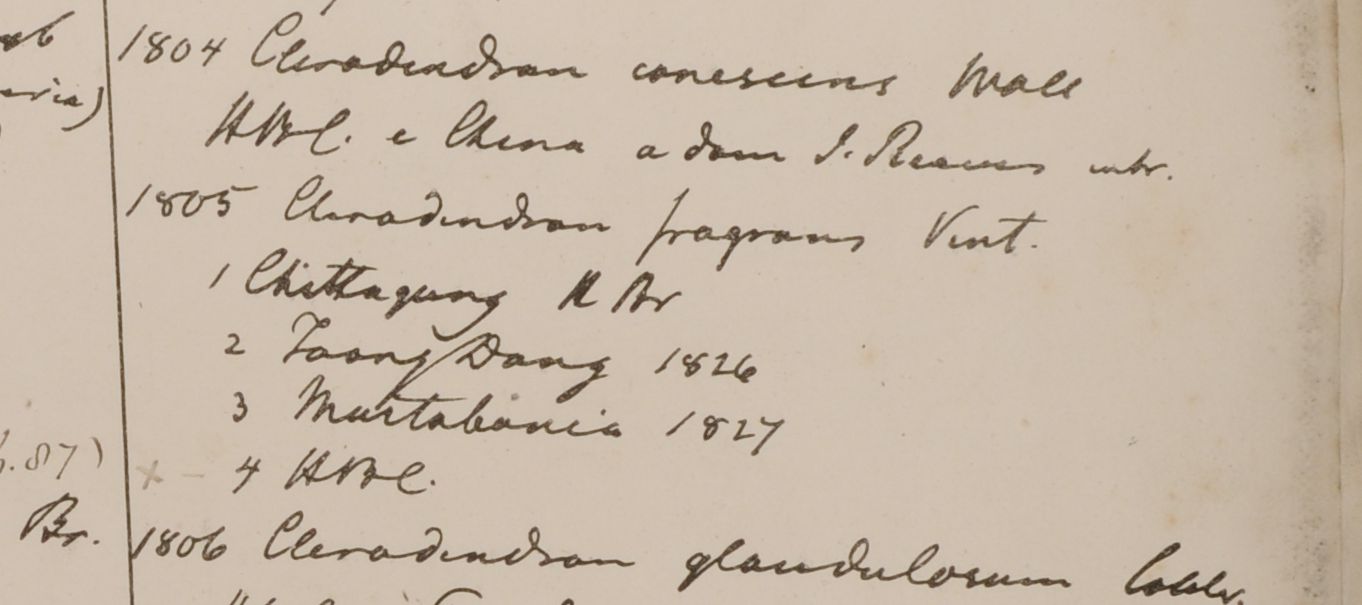 1804 Clerodendron canescens Wall
HBC. e China a dom J. Reeves
1805 Clerodendron fragrans Vent.
1 Chittagung H Br
2 Toong Dong 1826
3 Martabania 1827
4 HBC.
Br. 1806 Clerodendron glandulosum Colebr.